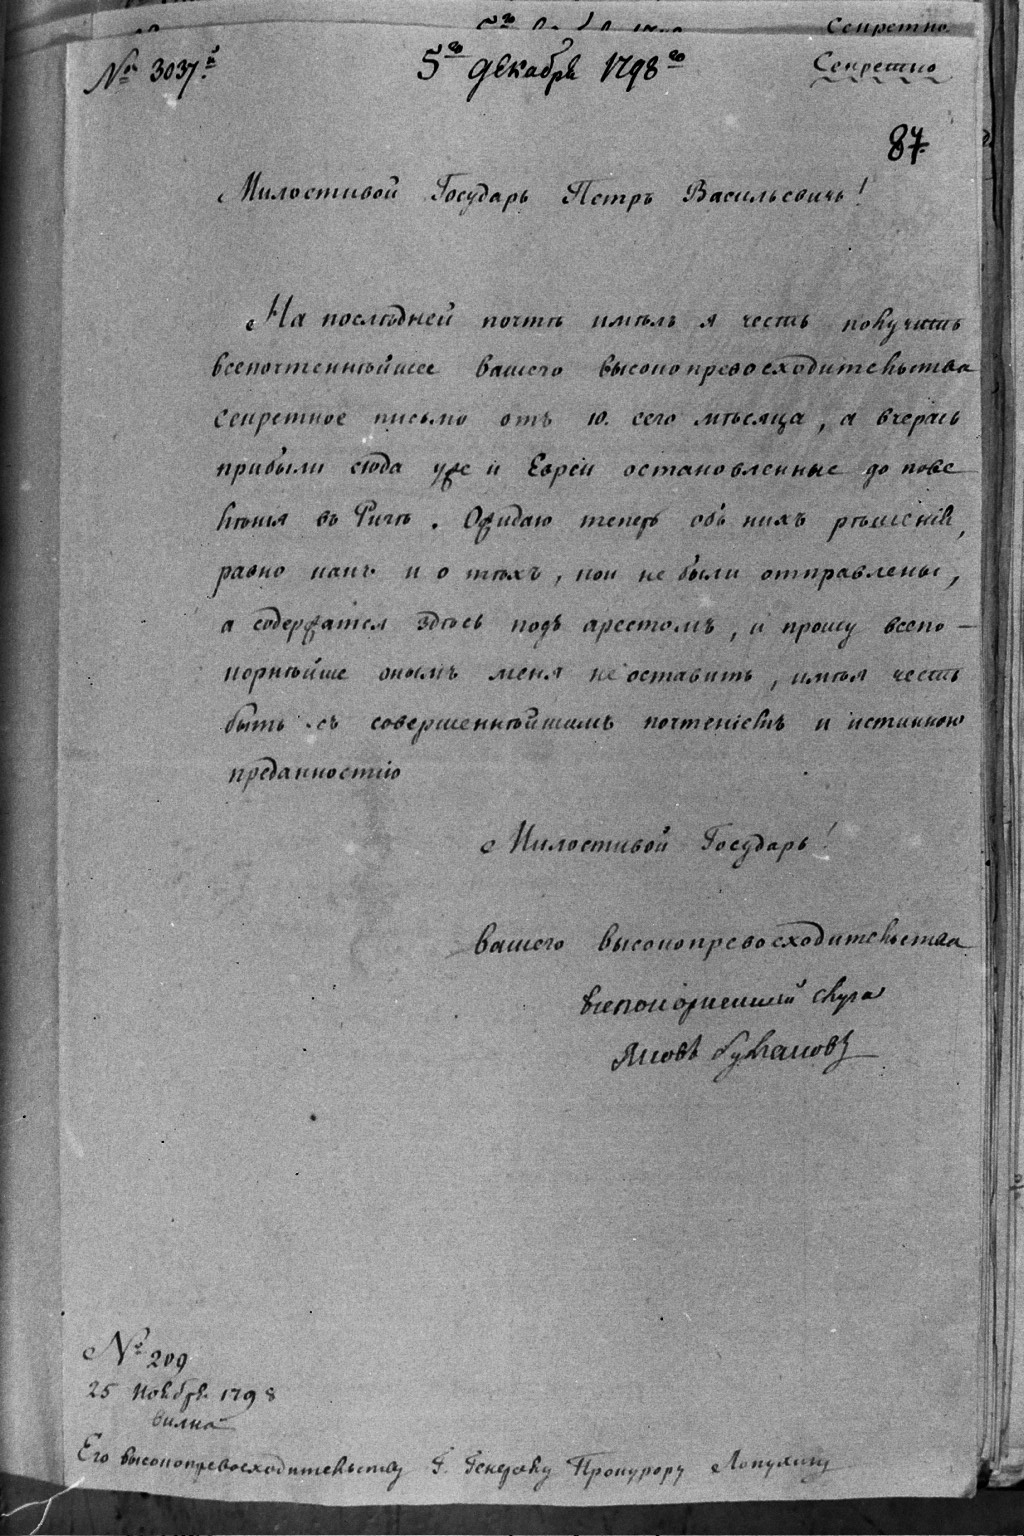 Секретно
№ 3037й
5го декабря 1798го
Секретно
87
Милостивой Государь Петръ Васильевичь!
На послѣдней почтѣ имѣлъ я честь получить
всепочтеннѣйшее вашего высокопревосходительства
секретное письмо отъ 10. сего мѣсяца, а вчерась
прибыли сюда уже и Евреи остановленные до пове
лѣнія въ Ригѣ. Ожидаю теперь объ нихъ рѣшеній,
равно какъ и о тѣхъ, кои не были отправлены,
а содержатся здѣсь подъ арестомъ, и прошу всепо-
корнѣйше онымъ меня не оставить, имѣя честь
быть съ совершеннѣйшимъ почтеніемъ и истинною
преданностію
Милостивой Государь!
вашего высокопревосходительства
всепокорнейший слуга
Яковъ Булгаковъ
№ 209
25 Ноября 1798
Вилна
Его высокопревосходительству Г. Генералу Прокурору Лопухину